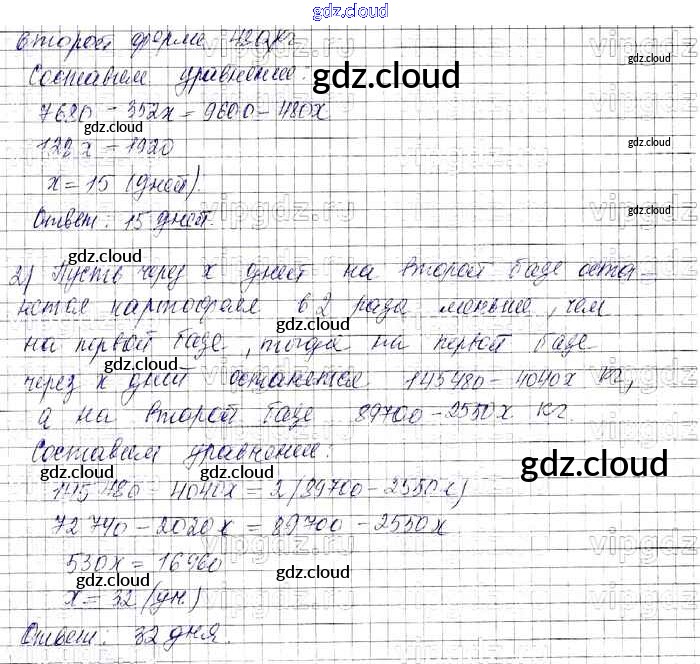 gdz.cloud
второй ферме 480 кг
Составим уравнение:
gdz.cloud
gdz.cloud
7680 - 352x = 9600 - 480x
gdz.cloud
gdz.cloud
128x = 1920
x = 15 (дней).
Ответ: 15 дней.
vipgdz.ru
gdz.cloud
gdz.cloud
2) Пусть через x дней на второй базе оста-
нется картофеля в 2 раза меньше, чем
gdz.cloud
на первой базе, тогда на первой базе
gdz.cloud
через x дней останется 145480 - 4040x кг,
а на второй базе 89700 - 2550x кг
gdz.cloud
Составим уравнение:
gdz.cloud
gdz.cloud
gdz.cloud
145480 - 4040x = 2(89700 - 2550x)
72740 - 2020x = 89700 - 2550x
gdz.cloud
530x = 16960
gdz.cloud
gdz.cloud
x = 32 (дн.)
Ответ: 32 дня.
gdz.cloud
gdz.cloud